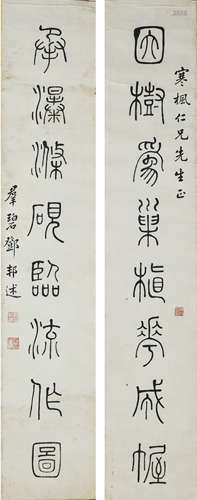 因樹為巢植花成幄
寒楓仁兄先生正
承瀑滌硯臨流作圖
羣碧鄧邦述